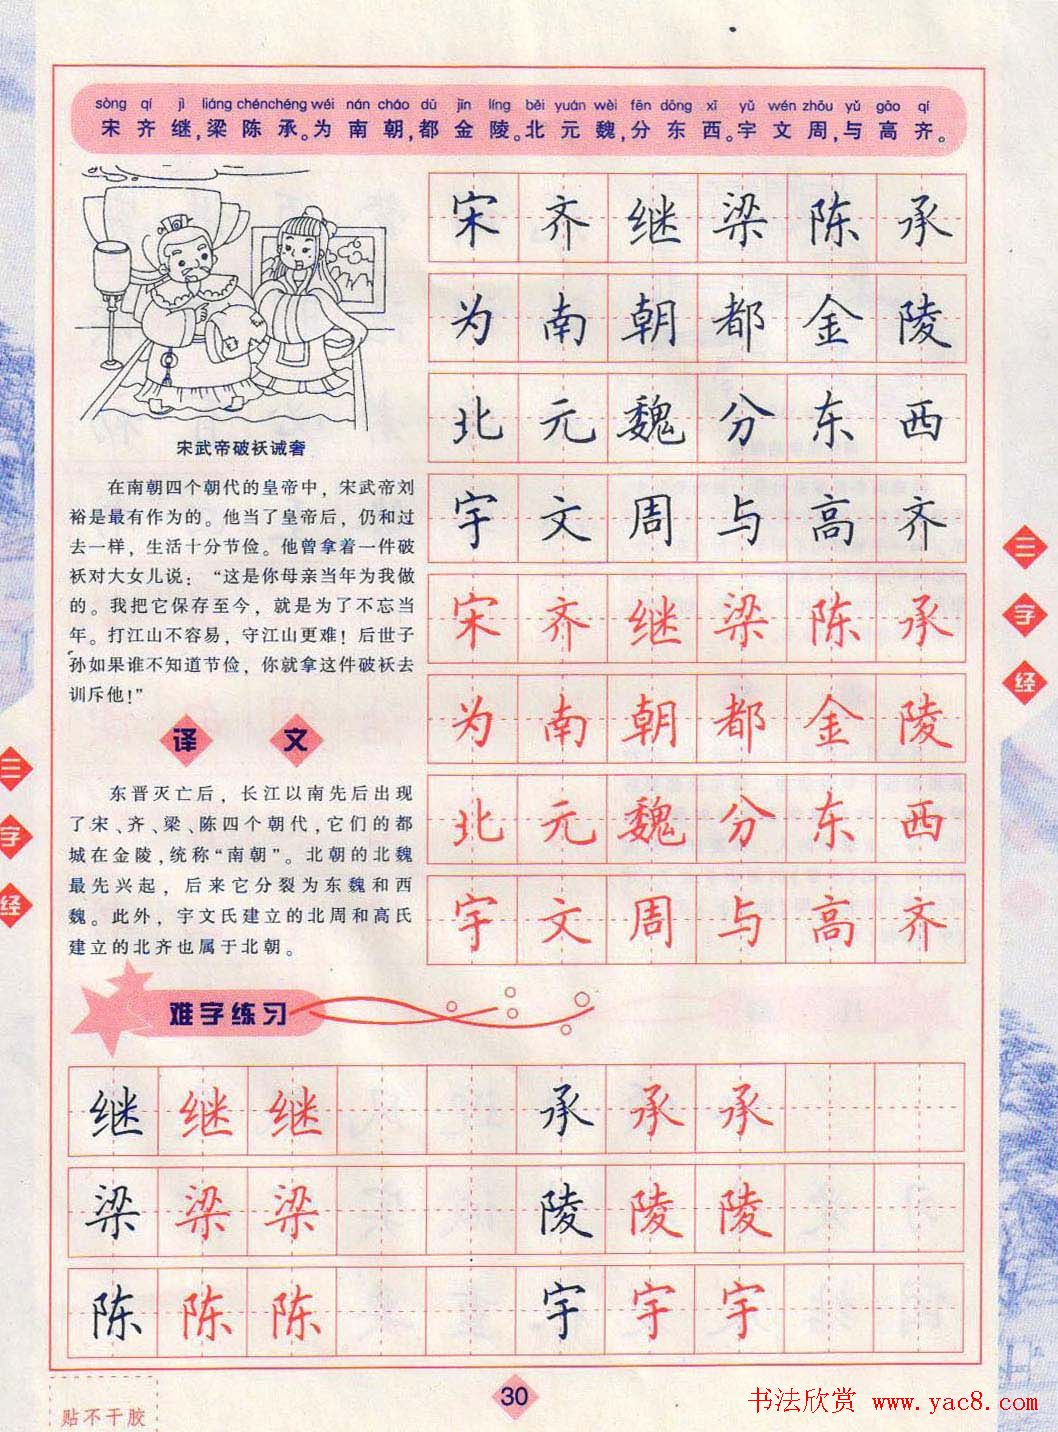 sòng qí jì liáng chén chéng wéi nán cháo dū jīn líng běi yuán wèi fēn dōng xī yǔ wén zhōu yǔ gāo qí
宋齐继,梁陈承。为南朝,都金陵。北元魏,分东西。宇文周,与高齐。
宋武帝破袄诫奢
在南朝四个朝代的皇帝中，宋武帝刘
裕是最有作为的。他当了皇帝后，仍和过
去一样，生活十分节俭。他曾拿着一件破
袄对大女儿说：“这是你母亲当年为我做
的。我把它保存至今，就是为了不忘当
年。打江山不容易，守江山更难！后世子
孙如果谁不知道节俭，你就拿这件破袄去
训斥他！”
译文
东晋灭亡后，长江以南先后出现
了宋、齐、梁、陈四个朝代，它们的都
城在金陵，统称“南朝”。北朝的北魏
最先兴起，后来它分裂为东魏和西
魏。此外，宇文氏建立的北周和高氏
建立的北齐也属于北朝。
宋齐继梁陈承
为南朝都金陵
北元魏分东西
宇文周与高齐
宋齐继梁陈承
为南朝都金陵
北元魏分东西
宇文周与高齐
三字经
三字经
难字练习
继继继 承承承
梁梁梁 陵陵陵
陈陈陈 宇宇宇
30
贴不干胶
书法欣赏 www.yac8.com